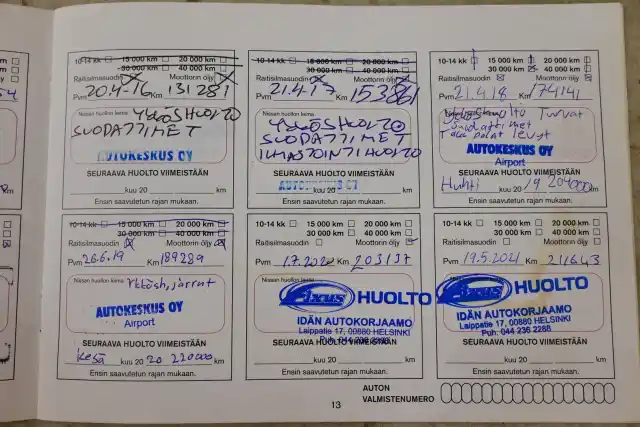 10-14 kk 15 000 km 20 000 km
30 000 km 40 000 km
Raitisilmasuodin Moottorin öljy
Pvm 20.4-16 Km 131281
Nissan huollon leima YLLÖSHUOLTO
SUODATTIMET
AUTOKESKUS OY
SEURAAVA HUOLTO VIIMEISTÄÄN
kuu 20 km
Ensin saavutetun rajan mukaan.
10-14 kk 15 000 km 20 000 km
30 000 km 40 000 km
Raitisilmasuodin Moottorin öljy
Pvm 21.4.17 Km 153861
Nissan huollon leima
SUODATTIMET
ILMASTOINTIHUOLTO
AUTOKESKUS OY
SEURAAVA HUOLTO VIIMEISTÄÄN
kuu 20 km
Ensin saavutetun rajan mukaan.
10-14 kk 15 000 km 20 000 km
30 000 km 40 000 km
Raitisilmasuodin Moottorin öljy
Pvm 21.4.18 Km 174141
Turvat
levyt
AUTOKESKUS OY
Airport
SEURAAVA HUOLTO VIIMEISTÄÄN
Huhti kuu 20 19 204000 km
Ensin saavutetun rajan mukaan.
10-14 kk 15 000 km 20 000 km
30 000 km 40 000 km
Raitisilmasuodin Moottorin öljy
Pvm 26.6.19 Km 189289
Nissan huollon leima jarrut
AUTOKESKUS OY
Airport
SEURAAVA HUOLTO VIIMEISTÄÄN
Kesä kuu 20 20 220000 km
Ensin saavutetun rajan mukaan.
10-14 kk 15 000 km 20 000 km
30 000 km 40 000 km
Raitisilmasuodin Moottorin öljy
Pvm 1.7.2020 Km 203137
Nissan huollon leima
Fixus HUOLTO
IDÄN AUTOKORJAAMO
Laippatie 17, 00880 HELSINKI
Puh: 044 236 2288
SEURAAVA HUOLTO VIIMEISTÄÄN
kuu 20 km
Ensin saavutetun rajan mukaan.
10-14 kk 15 000 km 20 000 km
30 000 km 40 000 km
Raitisilmasuodin Moottorin öljy
Pvm 19.5.2021 Km 211643
Fixus HUOLTO
IDÄN AUTOKORJAAMO
Laippatie 17, 00880 HELSINKI
Puh: 044 236 2288
SEURAAVA HUOLTO VIIMEISTÄÄN
kuu 20 km
Ensin saavutetun rajan mukaan.
13
AUTON
VALMISTENUMERO